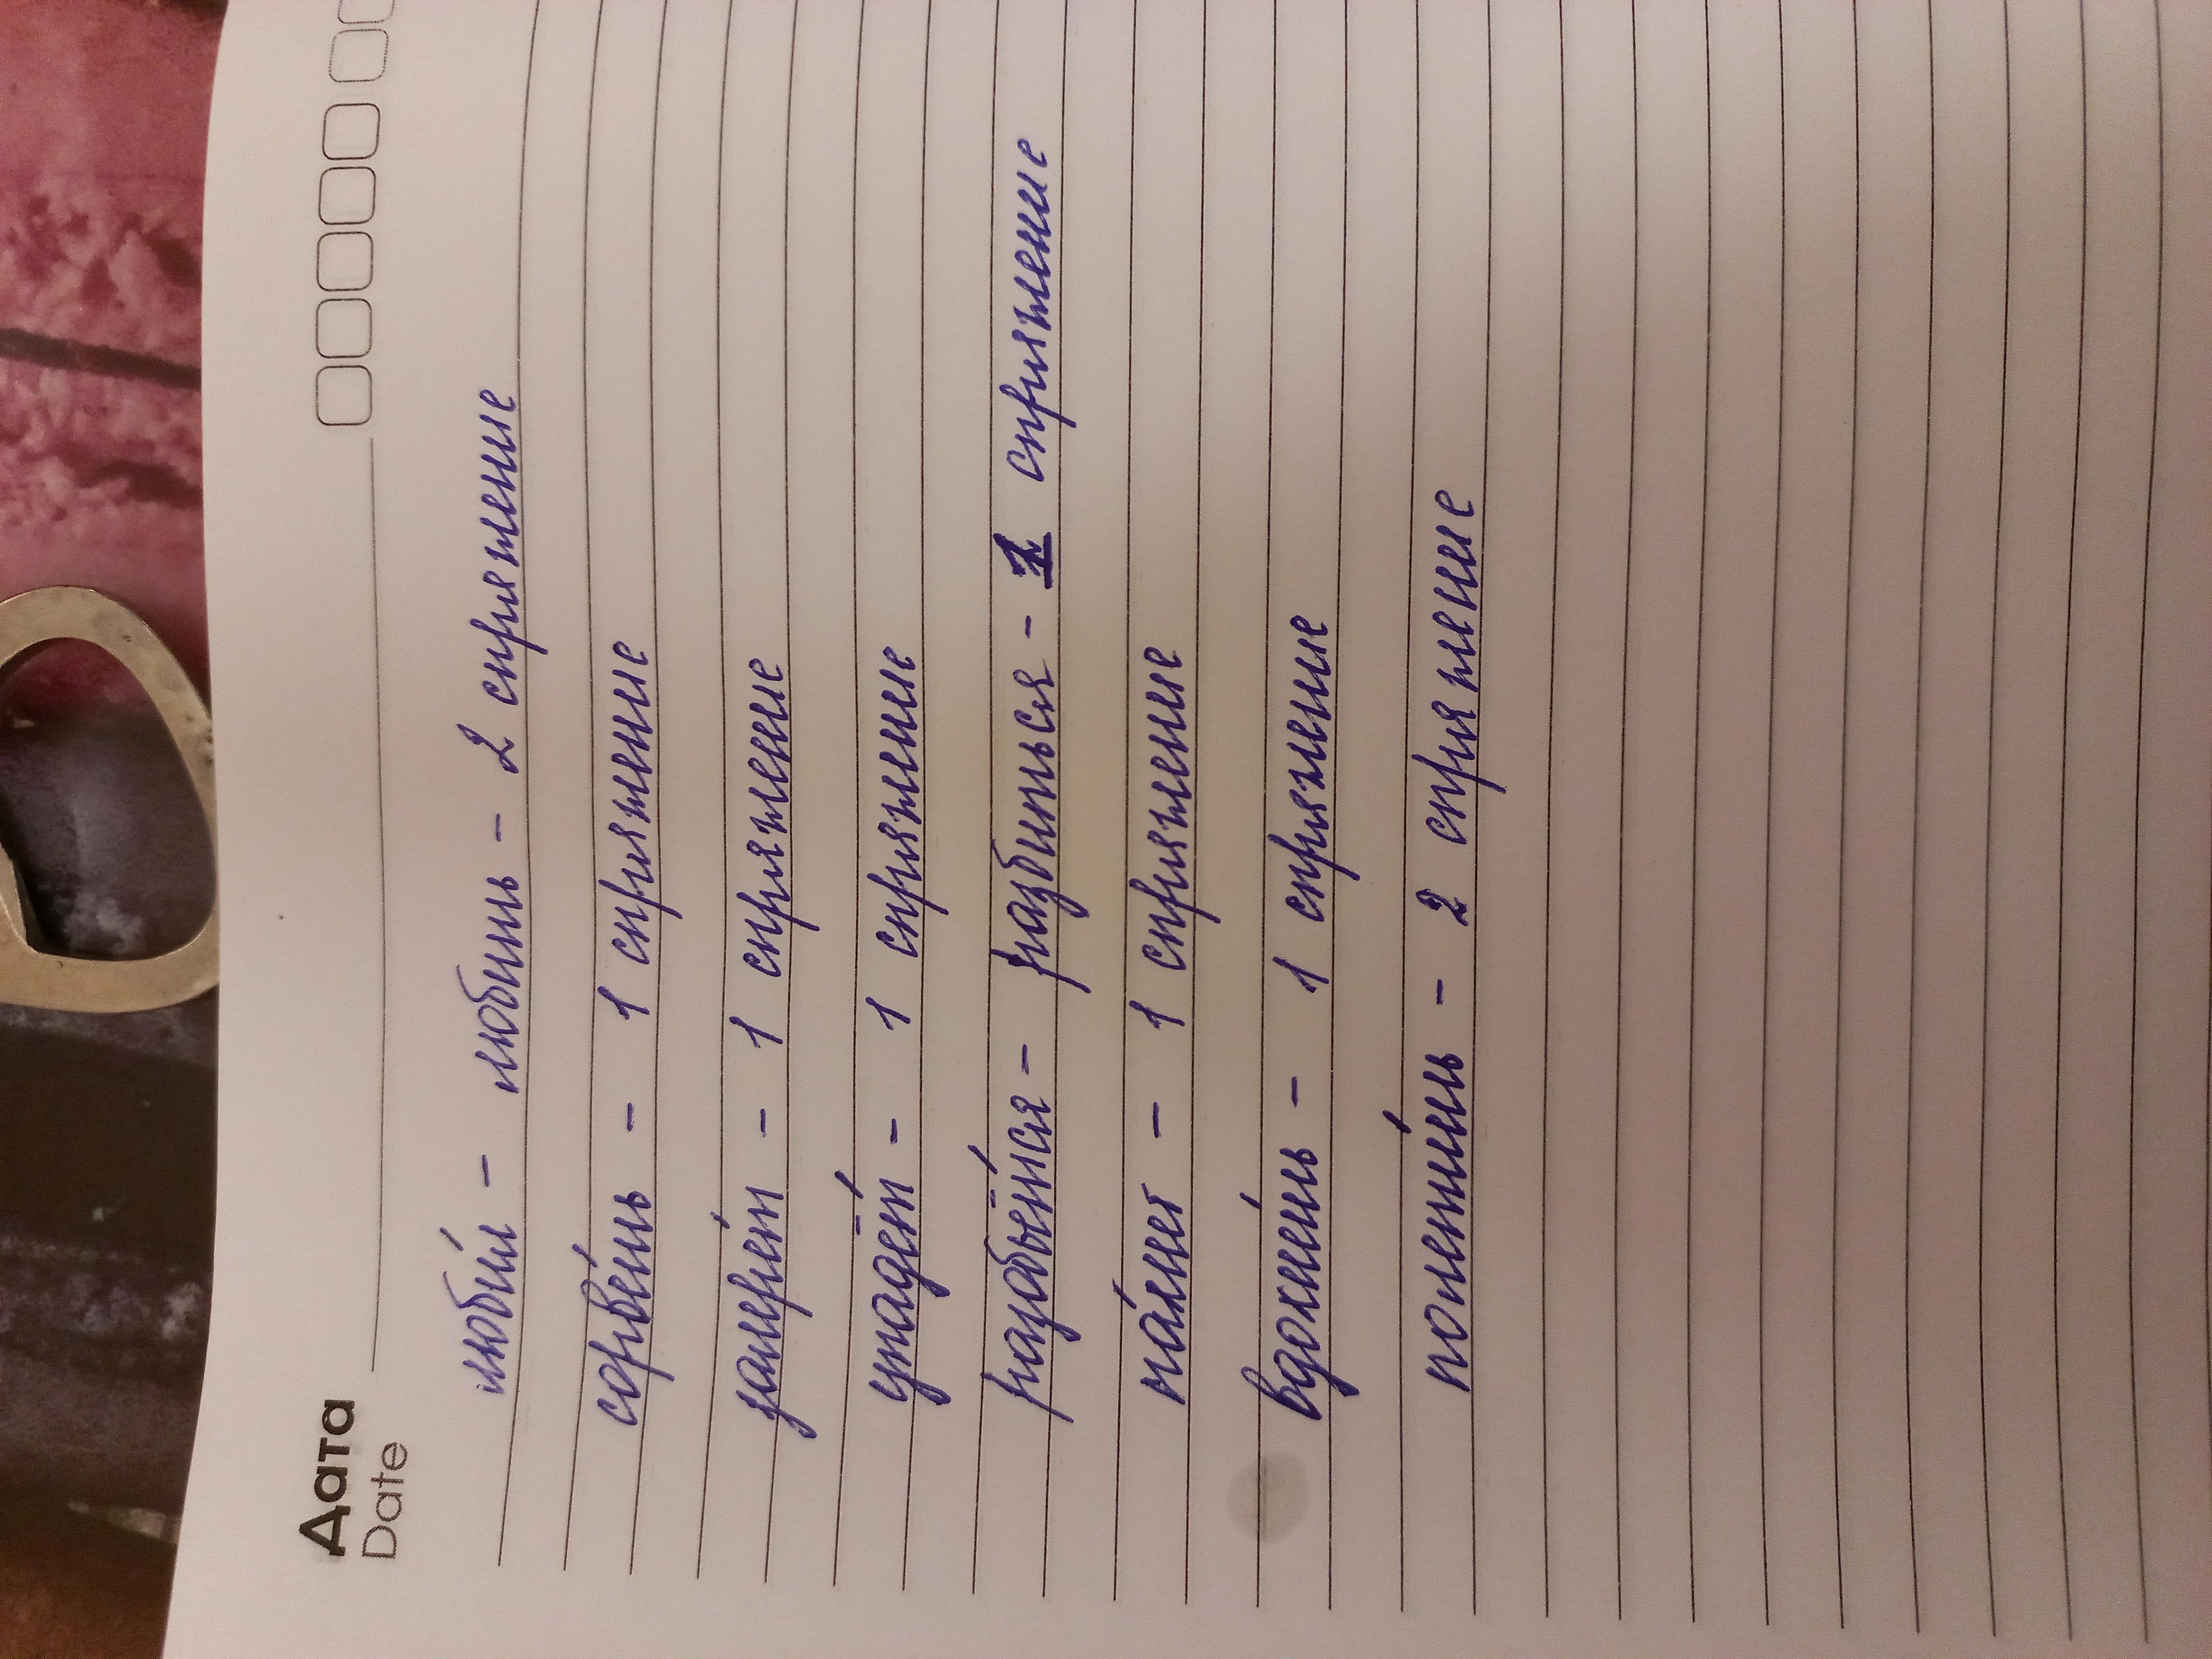 Дата
Date
любил - любить - 2 спряжение
сорвёшь - 1 спряжение
замрёт - 1 спряжение
упадёт - 1 спряжение
разобьётся - разбиться - 1 спряжение
ма́шет - 1 спряжение
вдохнёшь - 1 спряжение
полети́шь - 2 спряжение